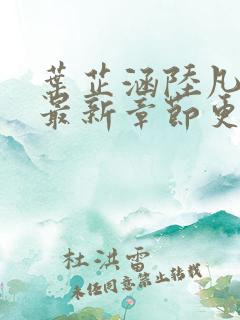 葉芷涵陸凡
最新章節更
杜洪雷
未经同意禁止转载